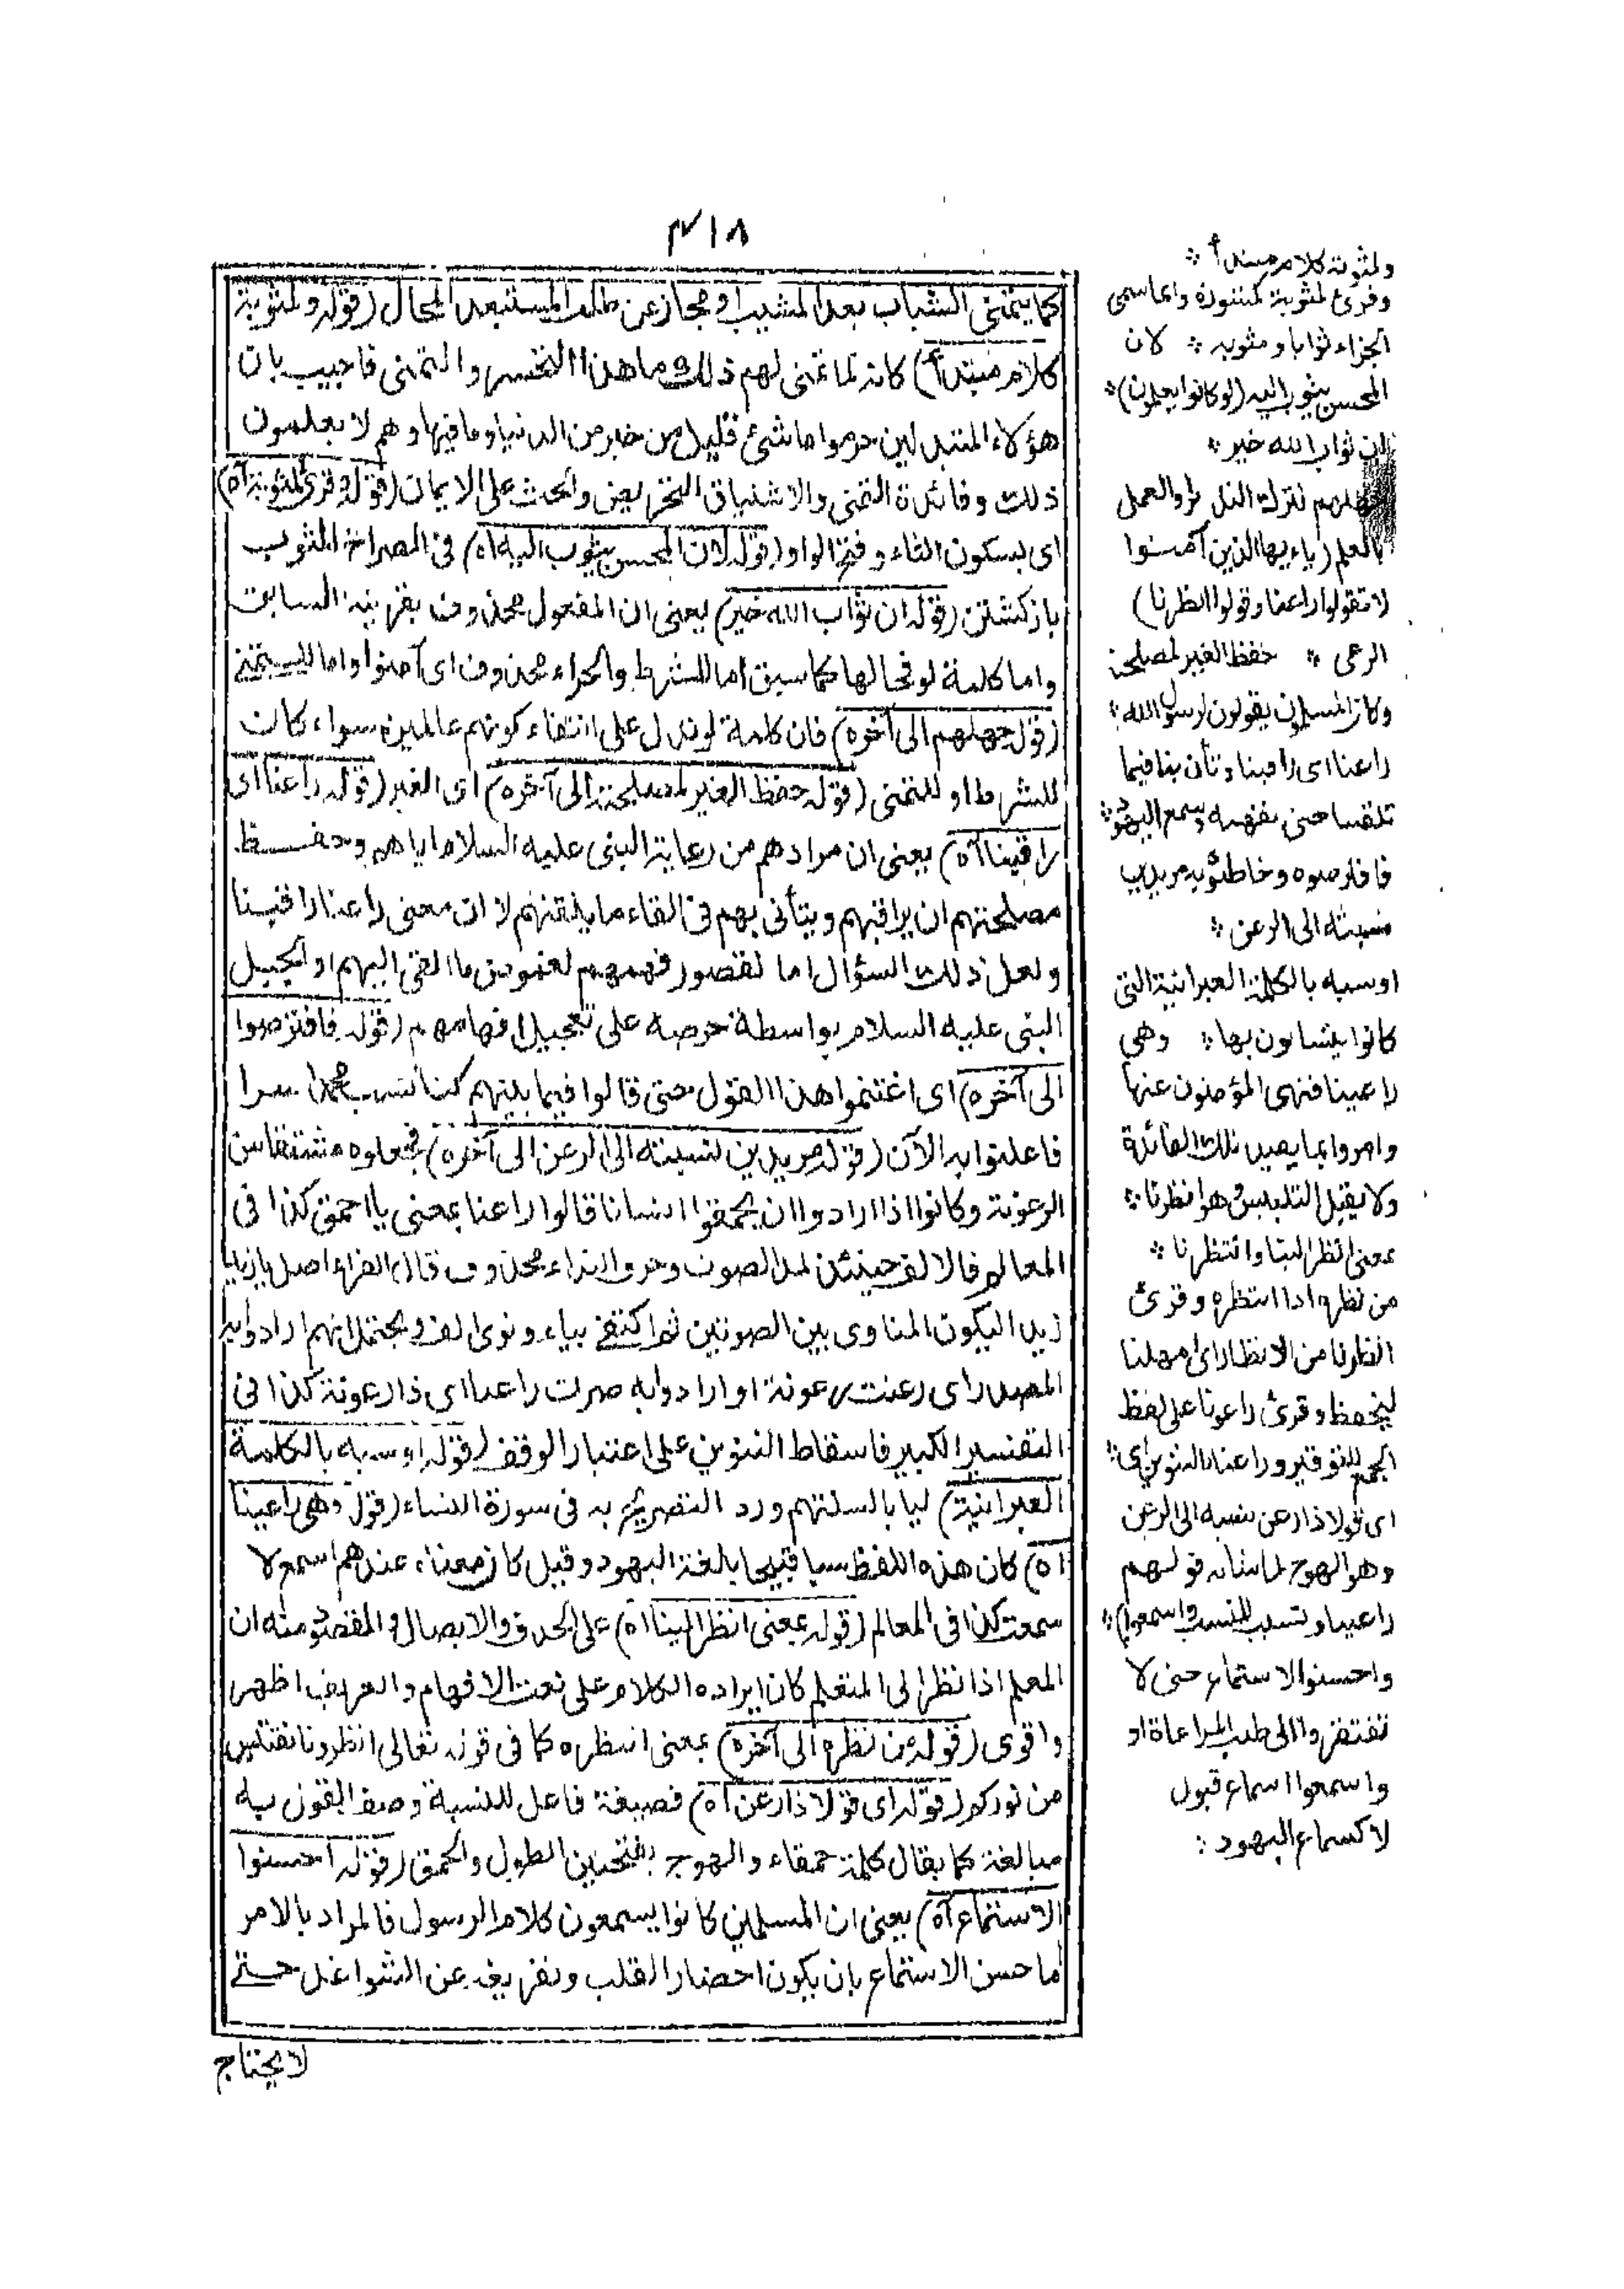 ٤١٨
كما يتمنى الشباب بعد المشيب او مجاز عن طلب المستبعد المحال (قوله ولمثوبة
كلام مبتدأ) كانه لما تمنى لهم ذلك ما هذا التحسر والتمنى فاجيب بان
هؤلاء المبتذلين حرموا ما شئ قليل من خير من الدنيا وما فيها وهم لا يعلمون
ذلك وفائدة التمنى والاشتياق التحريض والحث على الايمان (قوله وقرئ لمثوبة آه)
اى بسكون الثاء وفتح الواو (قوله لان المحسن يثوب اليه اه) فى المصراح المثوب
بازكشتن (قوله ان ثواب الله خير) يعنى ان المفعول محذوف بقرينة السابق
واما كلمة لو فحالها كما سبق اما للشرط والجزاء محذوف اى آمنوا واما لليتمنى
(قوله جهلهم الى آخره) فان كلمة لو تدل على انتفاء كونهم عالمين سواء كان
للشرط او للتمنى (قوله حفظ الغير لمصلحته الى آخره) اى الغير (قوله راعنا اى
راقبنا آه) يعنى ان مرادهم من رعاية النبى عليه السلام اياهم وحفظ
مصلحتهم ان يراقبهم ويتأنى بهم فى القاء ما يلقنهم لا ان معنى راعنا راقبنا
ولعل ذلك السؤال اما لقصور فهمهم لغموض ما القى اليهم او لتعجيل
النبى عليه السلام بواسطة حرصه على تعجيل افهامهم (قوله فافترصوا
الى آخره) اى اغتنموا هذا القول حتى قالوا فيما بينهم كنا نسب محمدا سرا
فاعلنوا به الآن (قوله مريدين نسبته الى الرعن الى آخره) فجعلوه مشتقا من
الرعونة وكانوا اذا ارادوا ان يحمقوا انسانا قالوا راعنا بمعنى يا احمق كذا فى
المعالم فالالف حينئذ لمد الصوت وحرف النداء محذوف قال الفراء اصل يا زيد يا
زيد اليكون المناوى بين الصوتين ثم اكتفى بياء ونوى الف ويحتمل انهم ارادوا به
المصدر اى رعنت رعونة او ارادوا به صرت راعنا اى ذا رعونة كذا فى
التفسير الكبير فاسقاط التنوين على اعتبار الوقف (قوله او سبه بالكلمة
العبرانية) ليا بالسنتهم ورد التصريح به فى سورة النساء (قوله وهى راعينا
اه) كان هذه اللفظ سبا قبيحا بلغة اليهود وقيل كان معناه عندهم اسمع لا
سمعت كذا فى المعالم (قوله بمعنى انظر الينا اه) على الحذف والايصال والمقصود منه ان
المعلم اذا نظر الى المتعلم كان ايراده الكلام على نعت الافهام والتعريف اظهر
واقوى (قوله من نظره الى آخره) بمعنى انتظره كما فى قوله تعالى انظرونا نقتبس
من نوركم (قوله اى قولا ذا رعن آه) فصيغة فاعل للنسبة وصف القول به
مبالغة كما يقال كلمة حمقاء والهوج بفتحتين الطول والحمق (قوله احسنوا
الاستماع آه) يعنى ان المسلمين كانوا يسمعون كلام الرسول فالمراد بالامر
اما حسن الاستماع بان يكون احضار القلب وتفريغه عن الشواغل حتى
لا يحتاج
ولمثوبة كلام مبتدأ *
وقرئ لمثوبة كمشورة وانما سمى
الجزاء ثوابا ومثوبة * لان
المحسن يثوب اليه (لو كانوا يعلمون) *
ان ثواب الله خير *
جهلهم لترك التدبر او العمل
بالعلم (يا ايها الذين آمنوا
لا تقولوا راعنا وقولوا انظرنا)
الرعى * حفظ الغير لمصلحته
وكان المسلمون يقولون لرسول الله *
راعنا اى راقبنا وتأن بنا فيما
تلقننا حتى نفهمه وسمع اليهود *
فافترصوه وخاطبوه به مريدين
نسبته الى الرعن *
او سبه بالكلمة العبرانية التى
كانوا يتسابون بها * وهى
راعينا فنهى المؤمنون عنها
وامروا بما يفيد تلك الفائدة
ولا يقبل التلبيس وهو انظرنا *
بمعنى انظر الينا وانتظرنا *
من نظره اذا انتظره وقرئ
انظرنا من الانظار اى امهلنا
لنحفظ وقرئ راعونا على لفظ
الجمع للتوقير وراعنا بالتنوين اى *
اى قولا ذا رعن نسبه الى الرعن
وهو الهوج لما شابه قولهم
راعينا وتسبب للسب (واسمعوا) *
واحسنوا الاستماع حتى لا
تفتقروا الى طلب المراعاة او
واسمعوا سماع قبول
لا كسماع اليهود :